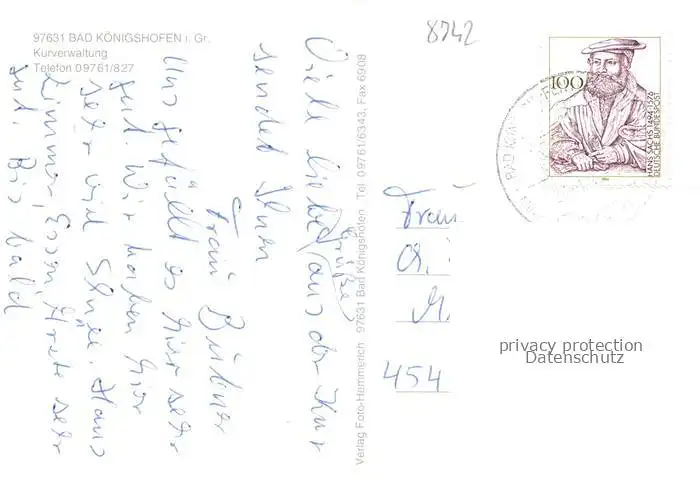 97631 BAD KÖNIGSHOFEN i. Gr.
Kurverwaltung
Telefon 09761/827
8742
Viele liebe Grüße aus der Kur
sendet Ihnen
Frau Büttner
Uns gefällt es hier sehr
gut. Wir haben hier
sehr viel Schnee. Haus
Zimmer, Essen, Ärzte sehr
gut. Bis bald
Verlag Foto-Hemmerich 97631 Bad Königshofen Tel. 09761/6343, Fax 6908
100
HANS SACHS 1494-1576
DEUTSCHE BUNDESPOST
BAD KÖN
Frau
M.
454
privacy protection
Datenschutz